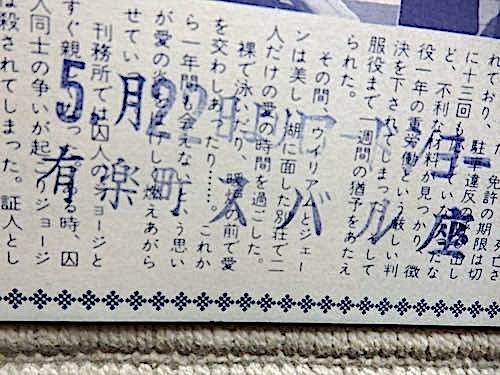 れており、
免許の期限は切
に十三回
駐車違反の
ど、不利な材料が見つかり、
役一年の重労働という厳しい判
決を下され
しまった。
して
服役まで一週間の猶予をあたえ
られた。
その間、ウイリアムとジェー
ンは美しい湖に面した別荘で二
人だけの愛の時間を過ごした。
裸で泳いだり、暖炉の前で愛
を交わしあったり……。これか
ら一年間も会えないという思い
が愛の炎を
燃えあがら
せてい
刑務所では囚人の
ジョージと
すぐ親
る時、囚
人同士の争いが起こりジョージ
は殺されてしまった。証人とし
5月22日
ロードショー
有楽町スバル座